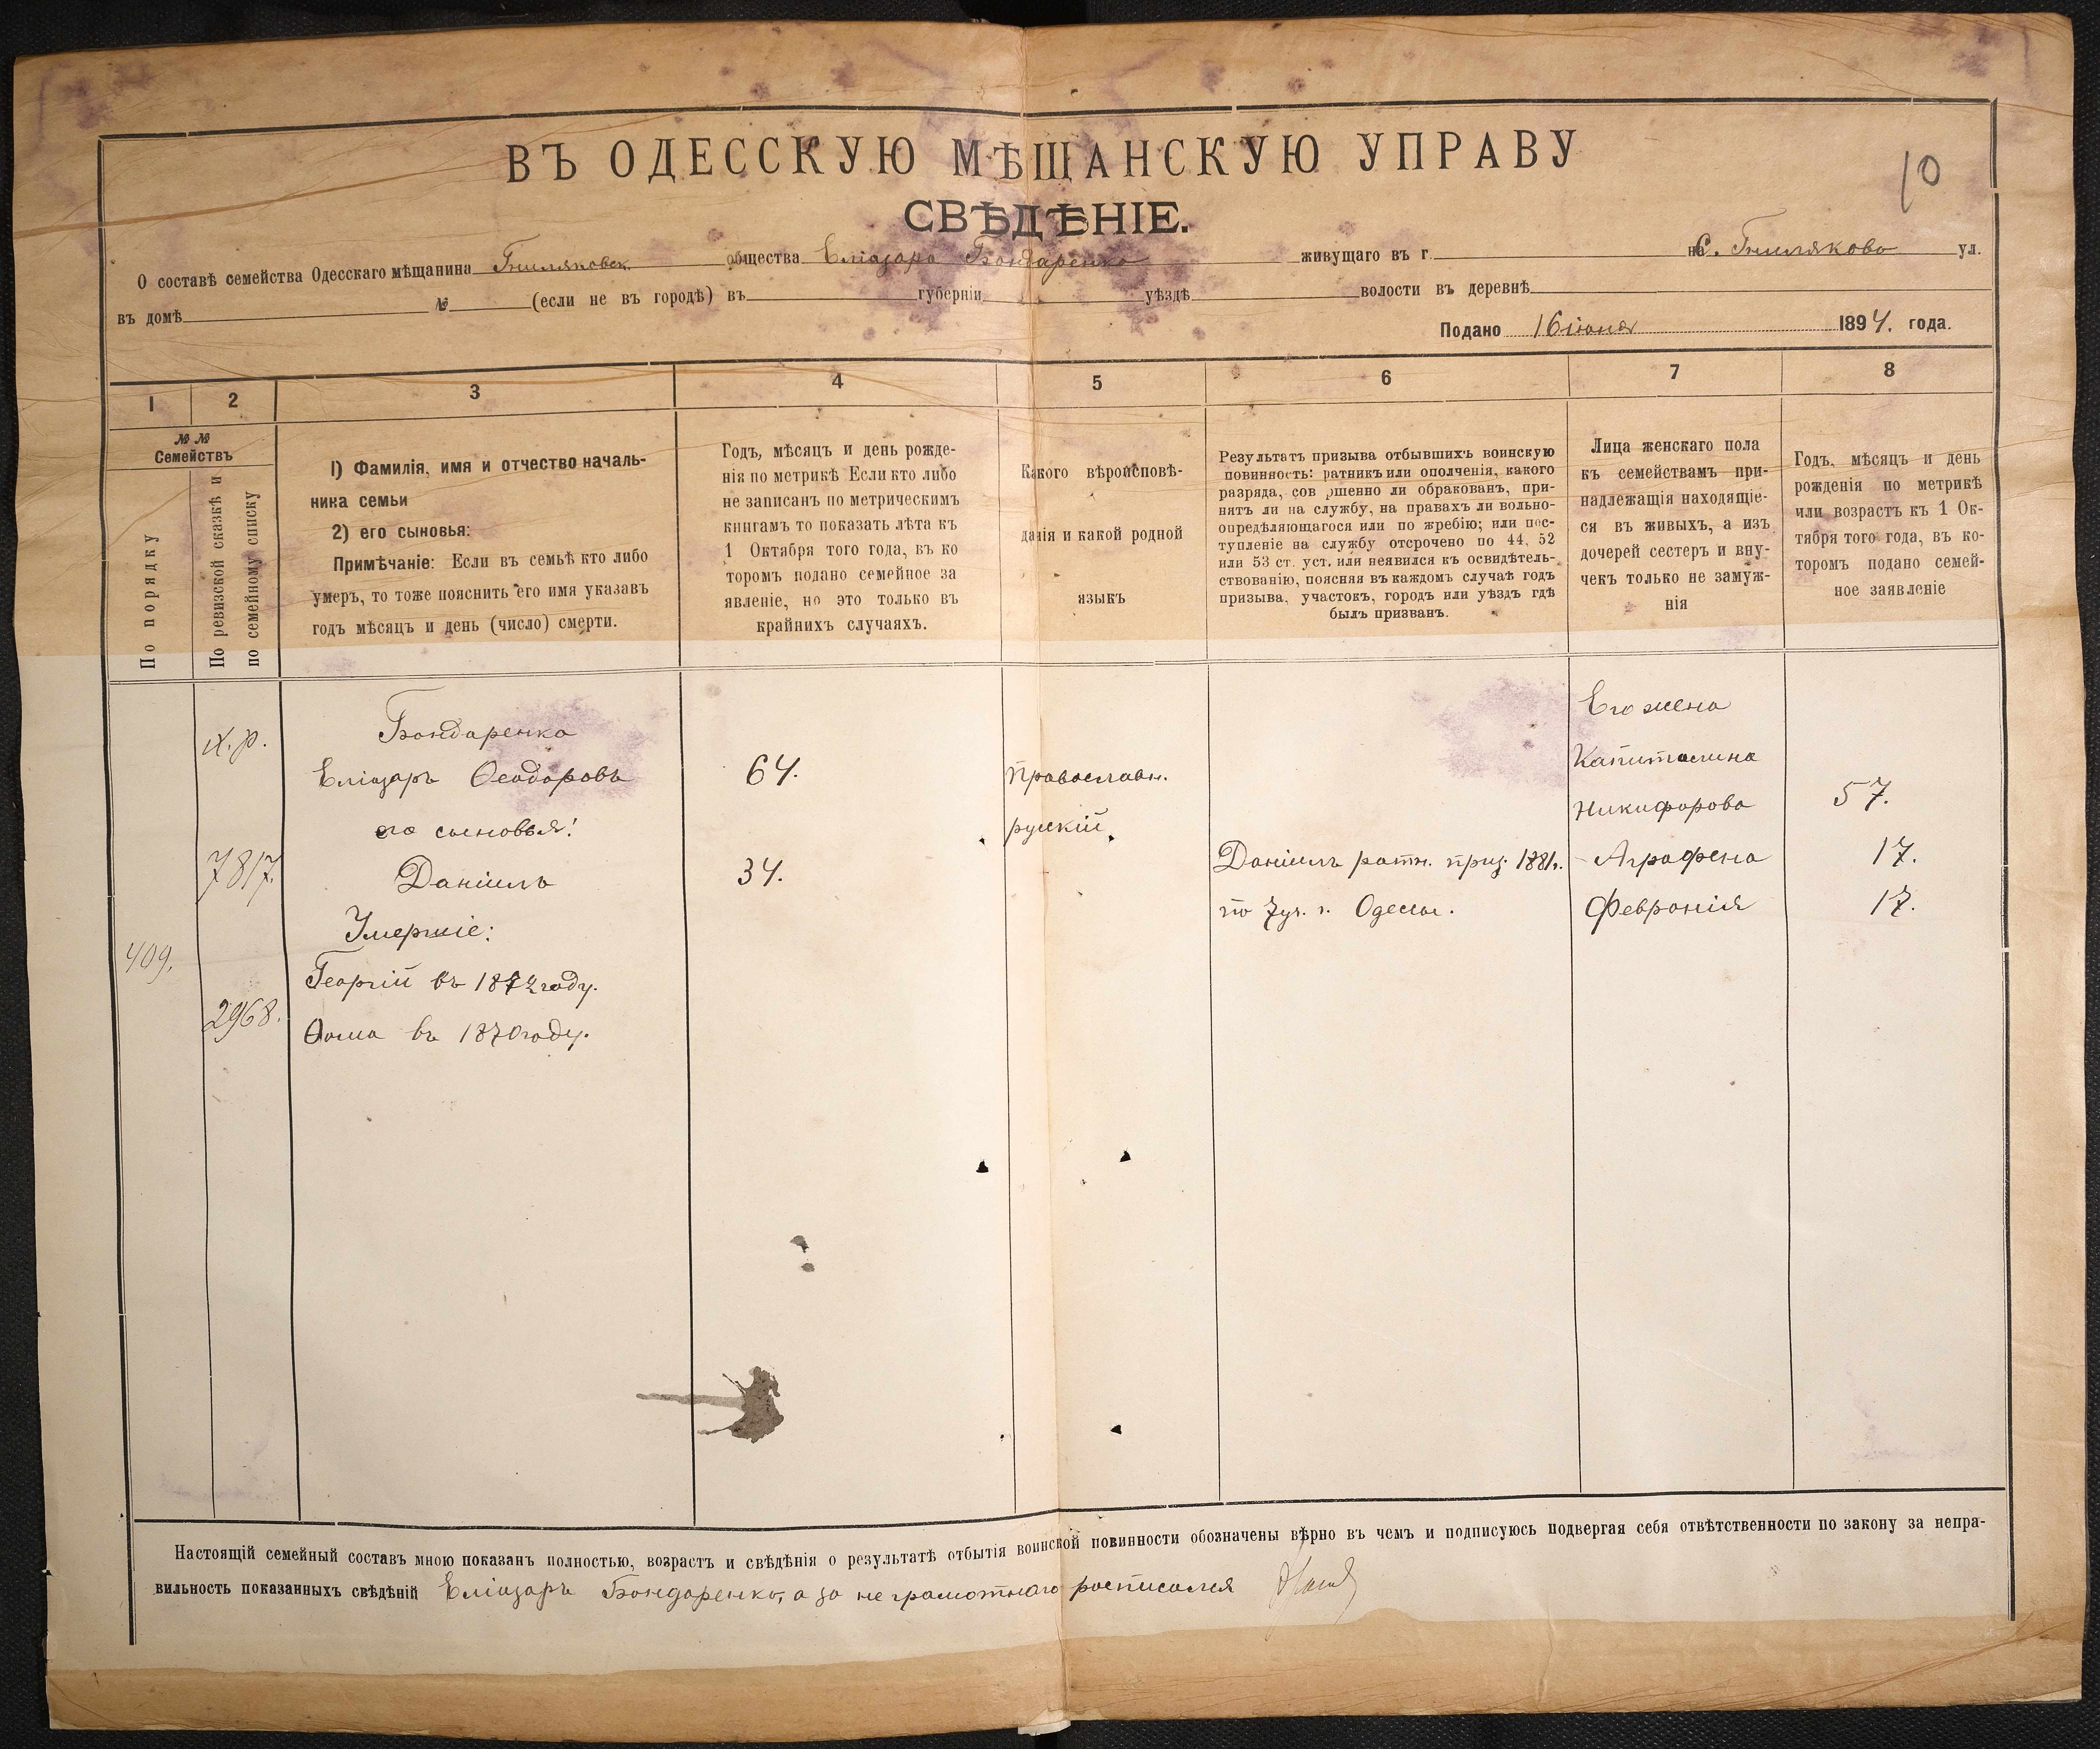 10
ВЪ ОДЕССКУЮ МѢЩАНСКУЮ УПРАВУ
СВѢДѢНІЕ.
О составѣ семейства Одесскаго мѣщанина Гниляковск. общества Еліазара Бондаренко живущаго въ г. на С. Гниляково ул.
въ домѣ № (если не въ городѣ) въ губерніи уѣздѣ волости въ деревнѣ
Подано 16 іюня 1894. года.
1 2 3 4 5 6 7 8
№ №
Семействъ
По порядку
По ревизской сказкѣ и
по семейному списку
1) Фамилія, имя и отчество началь-
ника семьи
2) его сыновья:
Примѣчаніе: Если въ семьѣ кто либо
умеръ, то тоже пояснить его имя указавъ
годъ мѣсяцъ и день (число) смерти.
Годъ, мѣсяцъ и день рожде-
нія по метрикѣ Если кто либо
не записанъ по метрическимъ
книгамъ то показать лѣта къ
1 Октября того года, въ ко
торомъ подано семейное за
явленіе, но это только въ
крайнихъ случаяхъ.
Какого вѣроисповѣ-
данія и какой родной
языкъ
Результатъ призыва отбывшихъ воинскую
повинность: ратникъ или ополченія, какого
разряда, сов ршенно ли обракованъ, при-
нятъ ли на службу, на правахъ ли вольно-
опредѣляющагося или по жребію; или пос-
тупленіе на службу отсрочено по 44, 52
или 53 ст. уст. или неявился къ освидѣтель-
ствованію, поясняя въ каждомъ случаѣ годъ
призыва, участокъ, городъ или уѣздъ гдѣ
былъ призванъ.
Лица женскаго пола
къ семействамъ при-
надлежащія находящіе-
ся въ живыхъ, а изъ
дочерей сестеръ и вну-
чекъ только не замуж-
нія
Годъ, мѣсяцъ и день
рожденія по метрикѣ
или возрастъ къ 1 Ок-
тября того года, въ ко-
торомъ подано семей-
ное заявленіе
409.
х.р.
7817.
2968.
Бондаренко
Еліазаръ Ѳеодоровъ
его сыновья:
Даніилъ
Умершіе:
Георгій въ 1872 году.
Ѳома въ 1870 году.
64.
34.
Православн.
русскій.
Даніилъ ратн. приз. 1881г.
по 7 уч. г. Одессы.
Его жена
Капиталина
Никифорова
- Аграфена
Февронія
57.
17.
17.
Настоящій семейный составъ мною показанъ полностью, возрастъ и свѣдѣнія о результатѣ отбытія воинской повинности обозначены вѣрно въ чемъ и подписуюсь подвергая себя отвѣтственности по закону за непра-
вильность показанныхъ свѣдѣній Еліазаръ Бондаренко, а за не грамотнаго росписался